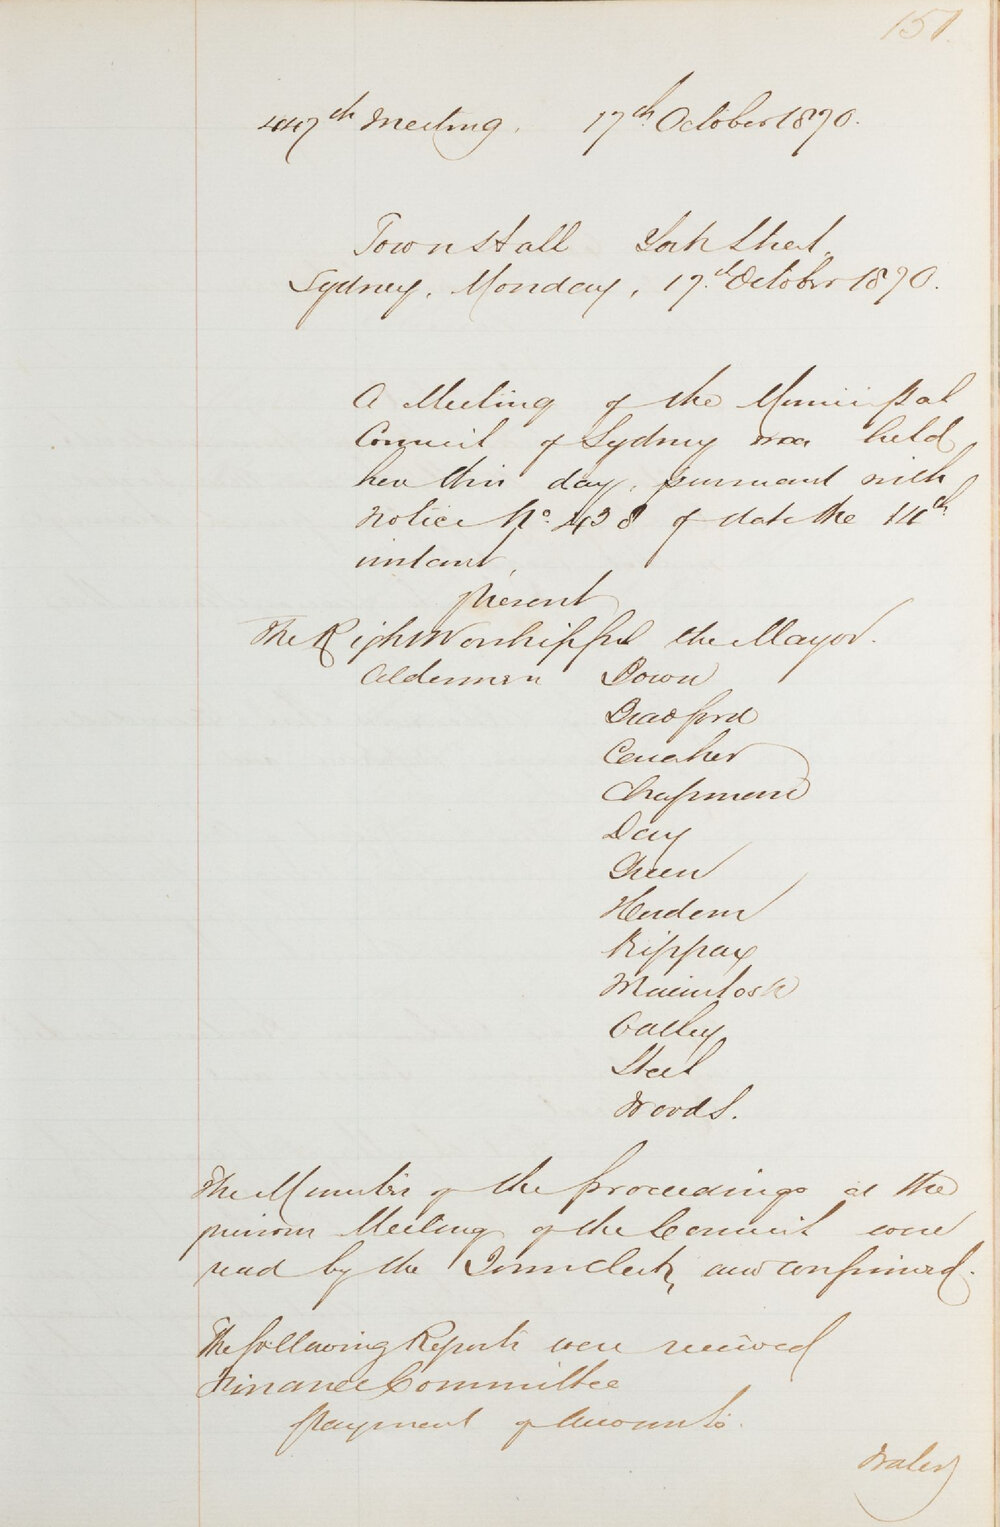 151.
447th Meeting. 17th October 1870.
Town Hall York Street.
Sydney, Monday, 17th October 1870.
A Meeting of the Municipal
Council of Sydney was held
here this day, pursuant with
notice No. 438 of date the 14th
instant,
present
The Right Worshipful the Mayor.
Aldermen Down
Bradford
Caraher
Chapman
Day
Green
Hordern
Kippax
Macintosh
Oatley
Steel
Woods.
The Minutes of the proceedings at the
previous Meeting of the Council were
read by the Town Clerk, and confirmed.
The following Reports were received
Finance Committee
payment of Accounts.
Water